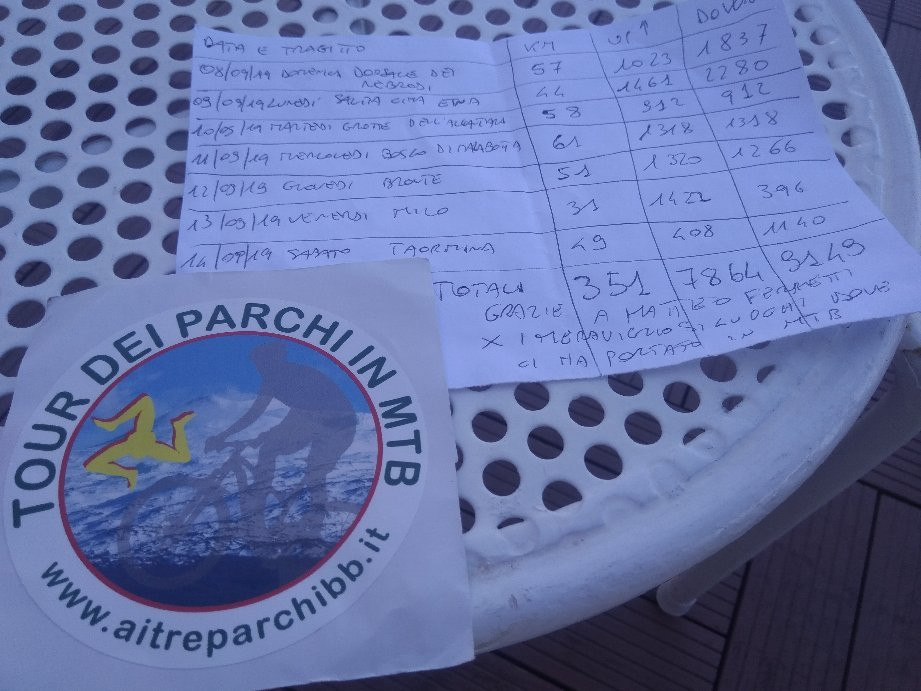 DATA E TRAGITTO KM UP↑ DOWN
08/09/19 DOMENICA DORSALE DEI 57 1023 1837
NEBRODI
09/09/19 LUNEDI' SALITA CIMA ETNA 44 1461 2280
10/09/19 MARTEDI GROTTE DELL'ALCANTARA 58 912 912
11/09/19 MERCOLEDI BOSCO DI MALABOTTA 61 1318 1318
12/09/19 GIOVEDI BRONTE 51 1320 1266
13/09/19 VENERDI MILO 31 1422 396
14/09/19 SABATO TAORMINA 49 408 1140
TOTALI 351 7864 9149
GRAZIE A MATTEO
X I MERAVIGLIOSI LUOGHI DOVE
CI HA PORTATO IN MTB
TOUR DEI PARCHI IN MTB
www.aitreparchibb.it